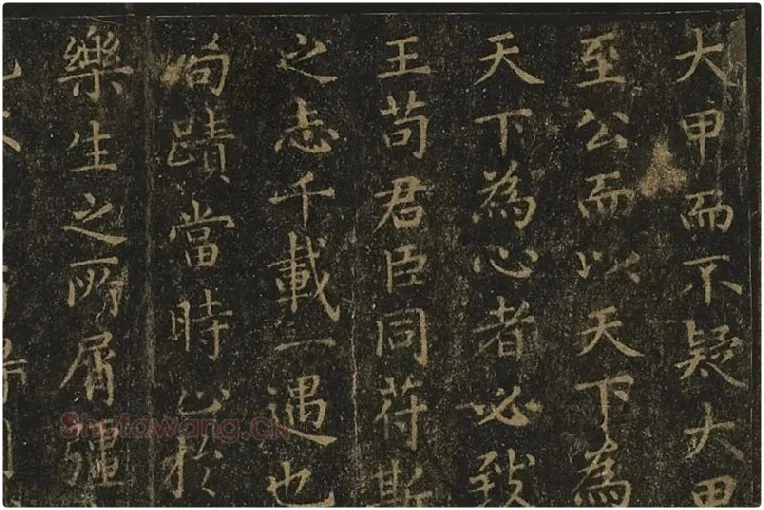 大甲而不疑大甲
至公而以天下為
天下為心者必致
王苟君臣同符斯
之志千載一遇也
當時止於
樂生之所屑彊
Shufawang.cn